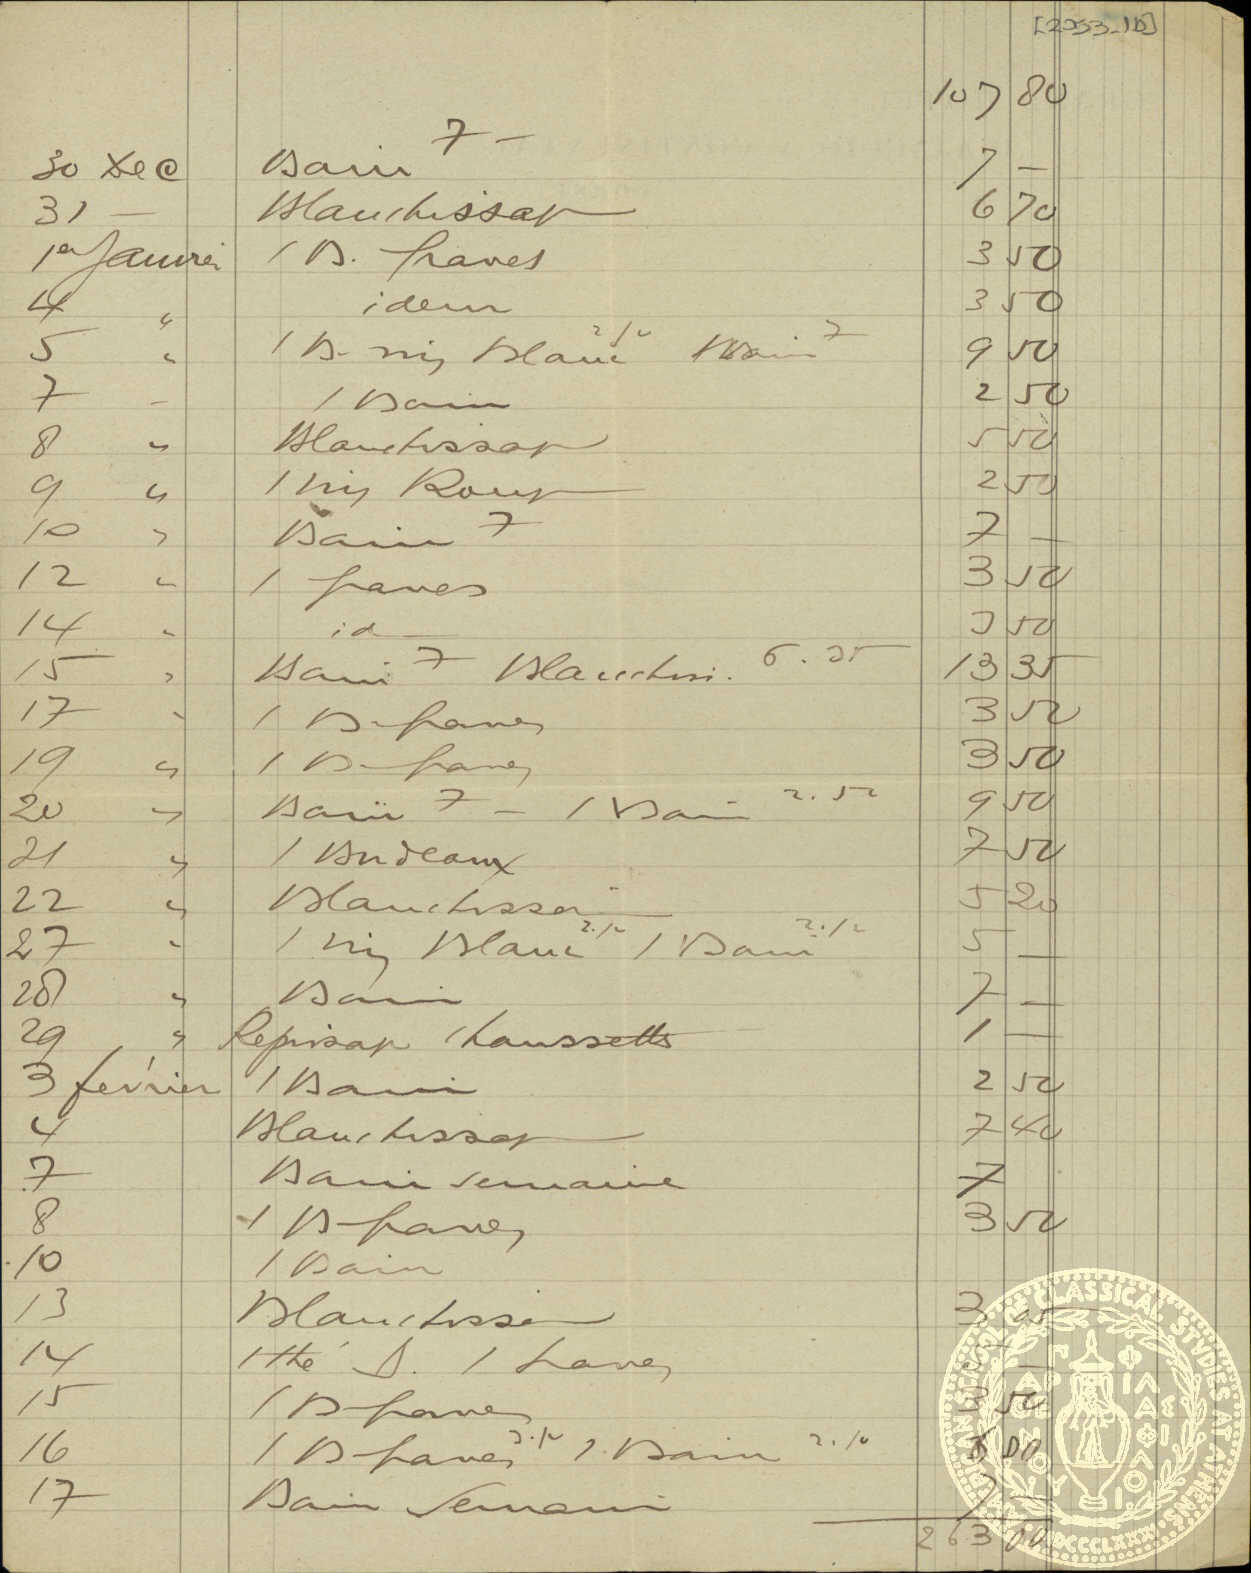 [2053_1b]
107 80
30 Dec Bain 7 — 7 —
31 — Blanchissage 6 70
1er Janvier 1 B. graves 3 50
4 " idem 3 50
5 " 1 B. Blanc 2 1/2 Bain 7 9 50
7 - 1 Bain 2 50
8 " Blanchissage 5 50
9 " 1 Rouge 2 50
10 " Bain 7 7 —
12 " 1 graves 3 50
14 " id — 3 50
15 " Bain 7 Blanchiss. 6.35 13 35
17 " 1 B. graves 3 50
19 " 1 B. graves 3 50
20 " Bain 7 — 1 Bain 2.50 9 50
21 " 1 Bordeaux 7 50
22 " Blanchissa 5 20
27 " 1 Blanc 2.1/2 1 Bain 2.1/2 5 —
28 " Bain 7 —
29 " Reprisage chaussettes 1 —
3 février 1 Bain 2 50
4 Blanchissage 7 40
7 Bain semaine 7
8 1 B. graves 3 50
10 1 Bain
13 Blanchissa 3
14 1 thé 1 graves
15 1 B. graves 3 50
16 1 B. graves 1 Bain
17 Bain Semaine 7 —
263 00
AMERICAN SCHOOL OF CLASSICAL STUDIES AT ATHENS · MDCCCLXXXI